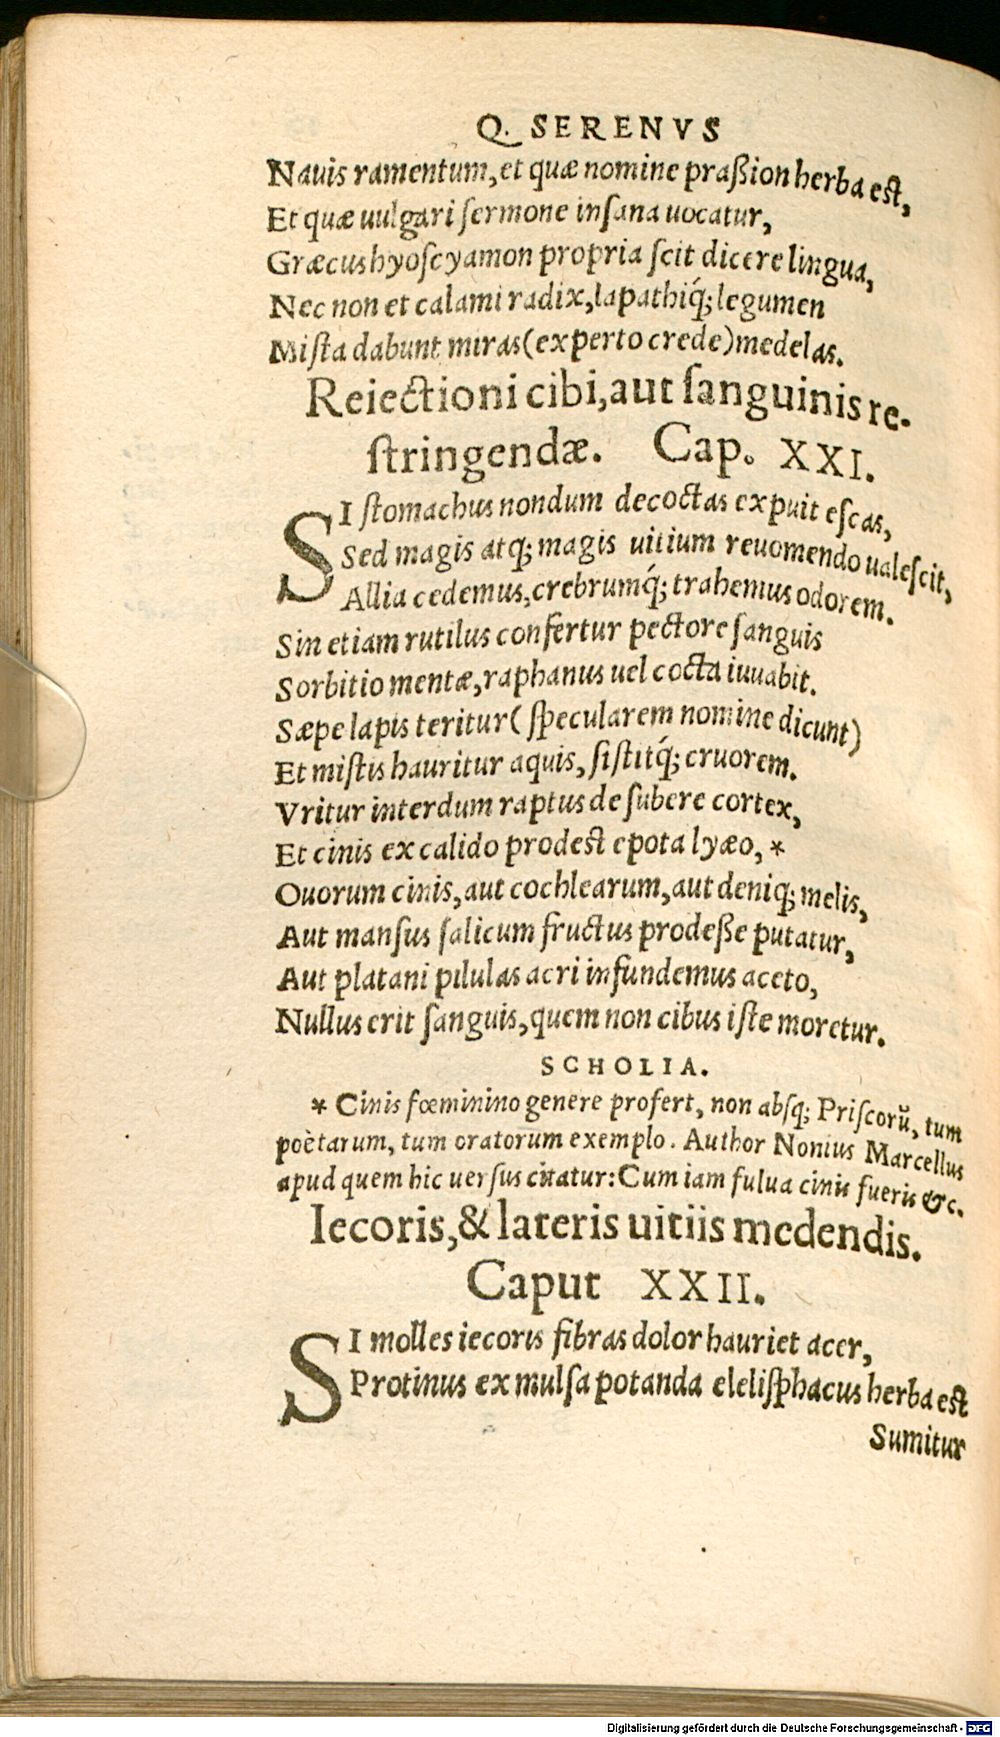 Q. SERENVS
Nauis ramentum, et quæ nomine praßion herba est,
Et quæ uulgari sermone insana uocatur,
Græcus hyoscyamon propria scit dicere lingua,
Nec non et calami radix, lapathiq́; legumen
Mista dabunt miras (experto crede) medelas.
Reiectioni cibi, aut sanguinis re-
stringendæ. Cap. XXI.
SI stomachus nondum decoctas expuit escas,
Sed magis atq; magis uitium reuomendo ualescit,
Allia cedemus, crebrumq́; trahemus odorem.
Sin etiam rutilus confertur pectore sanguis
Sorbitio mentæ, raphanus uel cocta iuuabit.
Sæpe lapis teritur (specularem nomine dicunt)
Et mistis hauritur aquis, sistitq́; cruorem.
Vritur interdum raptus de subere cortex,
Et cinis ex calido prodest epota lyæo, *
Ouorum cinis, aut cochlearum, aut deniq; melis,
Aut mansus salicum fructus prodeße putatur,
Aut platani pilulas acri infundemus aceto,
Nullus erit sanguis, quem non cibus iste moretur.
SCHOLIA.
* Cinis fœminino genere profert, non absq; Priscorũ, tum
poëtarum, tum oratorum exemplo. Author Nonius Marcellus
apud quem hic uersus citatur: Cum iam fulua cinis fueris &c.
Iecoris, & lateris uitiis medendis.
Caput XXII.
SI molles iecoris fibras dolor hauriet acer,
Protinus ex mulsa potanda elelisphacus herba est
Sumitur
Digitalisierung gefördert durch die Deutsche Forschungsgemeinschaft - DFG